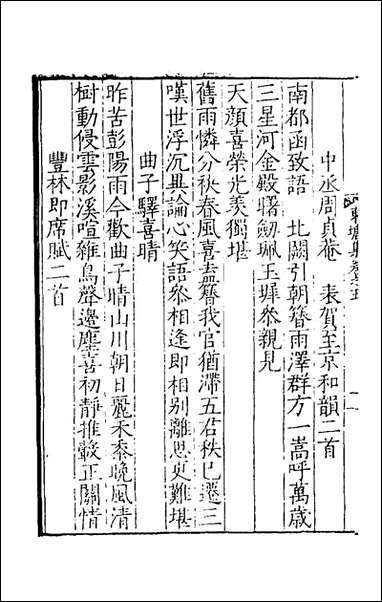 東塘集卷之五
中丞周貞菴 表賀至京和韻二首
南都函致語 北闕引朝簪雨澤群方一嵩呼萬歳
三星河金殿曙劔珮玉墀參親見
天顔喜榮光羡獨堪
舊雨憐分袂春風喜盍簪我官猶滯五君秩已遷三
嘆世浮沉異論心笑語參相逢即相别離思更難堪
曲子驛喜晴
昨苦彭陽雨今歡曲子晴山川朝日麗禾黍晩風清
樹動侵雲影溪喧雜鳥聲邊塵喜初靜推轂正關情
豐林即席賦二首